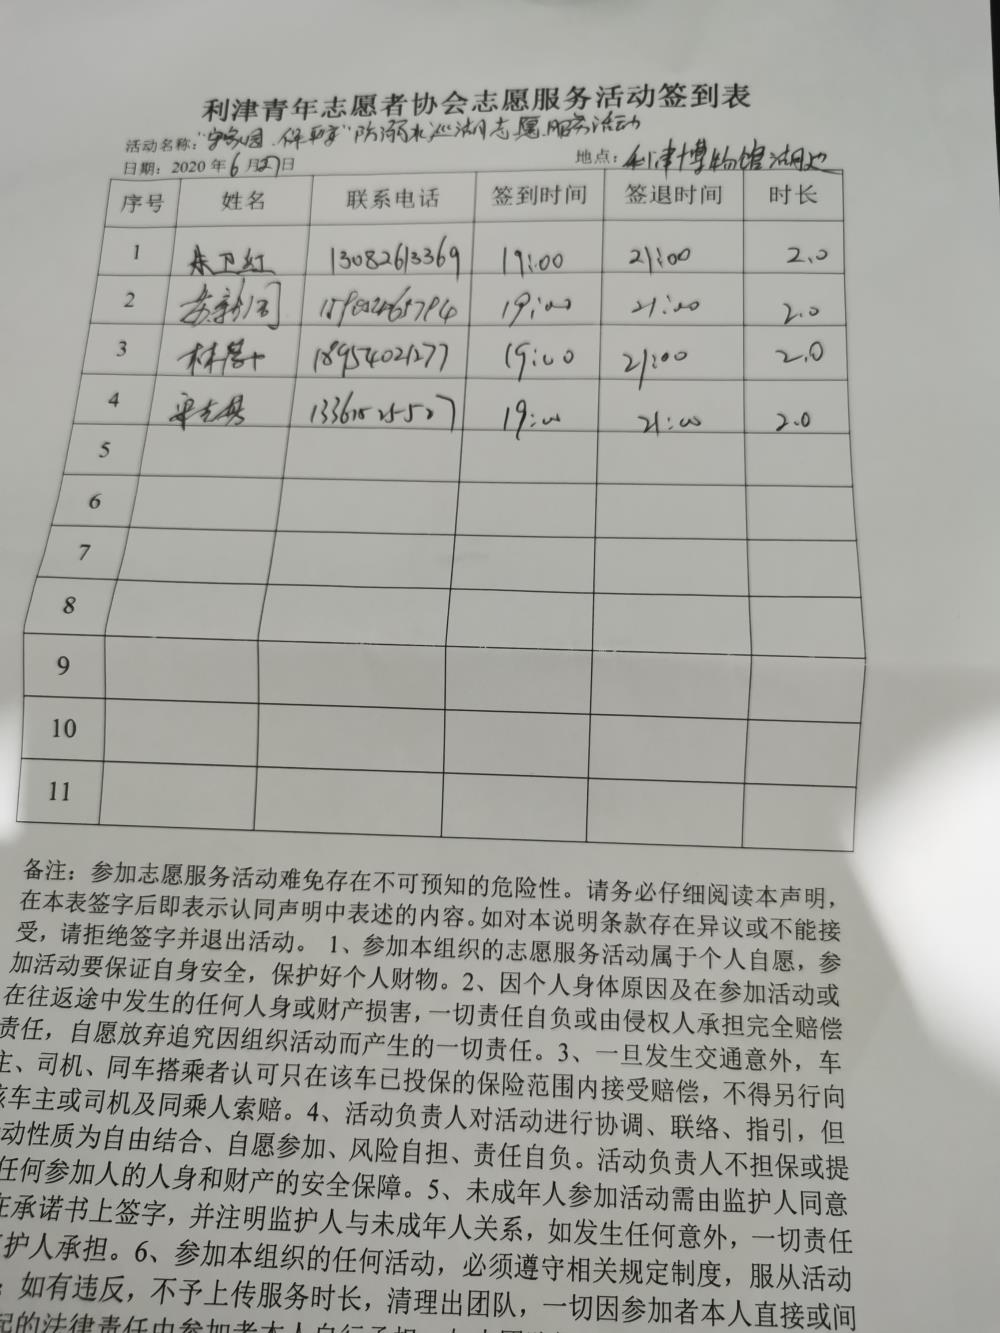 利津青年志愿者协会志愿服务活动签到表
活动名称:"守家园.保平安"防溺水巡湖志愿服务活动
日期:2020年6月27日 地点:利津博物馆湖边
序号 姓名 联系电话 签到时间 签退时间 时长
1 朱卫红 13082613369 19:00 21:00 2.0
2 19:00 21:00 2.0
3 18954021277 19:00 21:00 2.0
4 19:00 21:00 2.0
5
6
7
8
9
10
11
备注:参加志愿服务活动难免存在不可预知的危险性。请务必仔细阅读本声明,
在本表签字后即表示认同声明中表述的内容。如对本说明条款存在异议或不能接
受,请拒绝签字并退出活动。 1、参加本组织的志愿服务活动属于个人自愿,参
加活动要保证自身安全,保护好个人财物。2、因个人身体原因及在参加活动或
在往返途中发生的任何人身或财产损害,一切责任自负或由侵权人承担完全赔偿
责任,自愿放弃追究因组织活动而产生的一切责任。3、一旦发生交通意外,车
主、司机、同车搭乘者认可只在该车已投保的保险范围内接受赔偿,不得另行向
该车主或司机及同乘人索赔。4、活动负责人对活动进行协调、联络、指引,但
动性质为自由结合、自愿参加、风险自担、责任自负。活动负责人不担保或提
任何参加人的人身和财产的安全保障。5、未成年人参加活动需由监护人同意
在承诺书上签字,并注明监护人与未成年人关系,如发生任何意外,一切责任
护人承担。6、参加本组织的任何活动,必须遵守相关规定制度,服从活动
;如有违反,不予上传服务时长,清理出团队,一切因参加者本人直接或间
起的法律责任由参加者本人自行承担